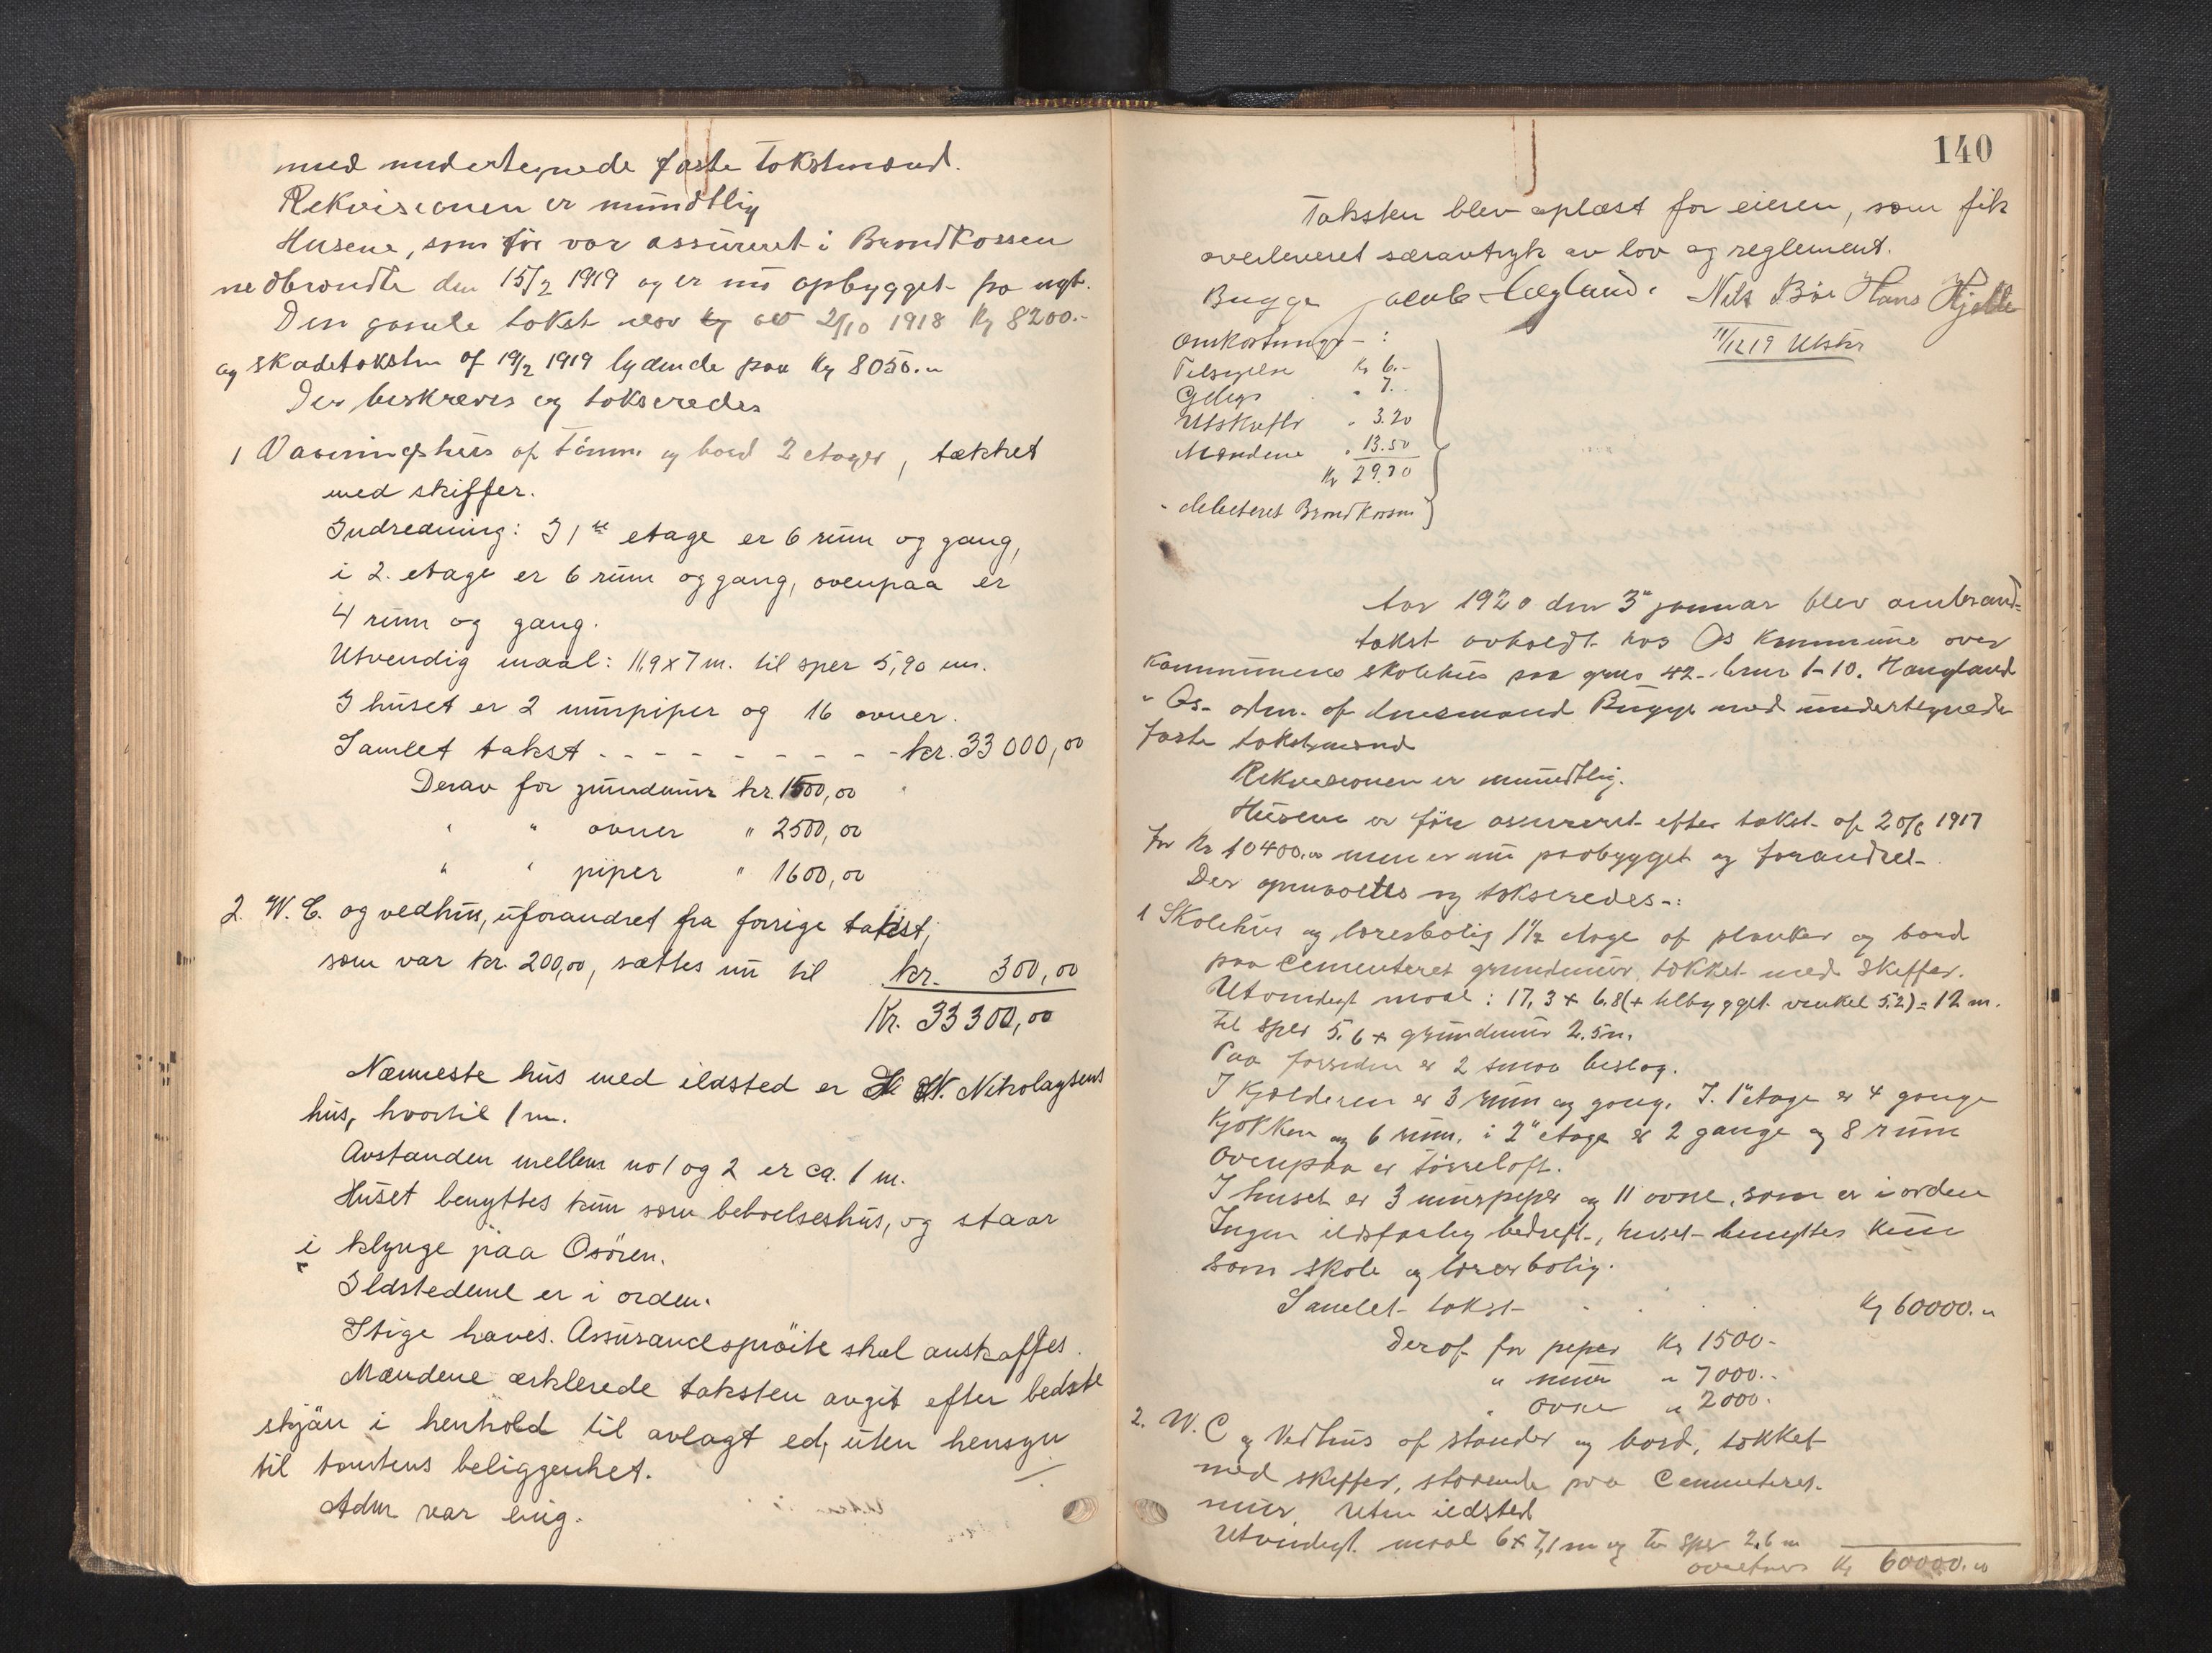 med undertegnede faste takstmænd.
Rekvisionen er mundtlig
Husene, som før var assureret i Brandkassen
nedbrændte den 15/2 1919 og er nu opbygget fra nyt.
Den gamle takst var av 2/10 1918 Kr 8200.-
og skadetaksten af 19/2 1919 lydende paa Kr 8050.-
Der beskreves og takseredes
1 Vaaningshus af Tømm. og bord 2 etager, tækket
med skiffer.
Indredning: I 1ste etage er 6 rum og gang,
i 2. etage er 6 rum og gang, ovenpaa er
4 rum og gang.
Utvendig maal: 11,9 x 7 m. til sper 5,90 m.
I huset er 2 murpiper og 16 ovner.
Samlet takst - - - - - - - - kr. 33 000,00
Derav for grundmur kr. 1500,00
" " ovner " 2500,00
" " piper " 1600,00
2. W.C. og vedhus, uforandret fra forrige takst,
som var kr. 200,00, sættes nu til kr. 300,00
Kr. 33 300,00
Nærmeste hus med ildsted er N. Nikolaysens
hus, hvortil 1 m.
Avstanden mellem no 1 og 2 er ca. 1 m.
Huset benyttes kun som beboelseshus, og staar
i klynge paa Osøren.
Ildstederne er i orden.
Stige haves. Assuransesprøite skal anskaffes.
Mændene erklærede taksten avgit efter bedste
skjøn i henhold til avlagt ed, uten hensyn
til tomtens beliggenhet.
Adm var enig.
140
Taksten blev oplæst for eieren, som fik
overleveret særavtryk av lov og reglement.
Bugge Jacob Hegland. Nils Bøe Hans Hjelle
11/12 19 Utskr
Omkostninger - :
Tilsigelse Kr 6.-
" 7.-
Utskrift " 3.20
Mændene " 13.50
Kr 29.70
- debiteret Brandkassen
Aar 1920 den 3" januar blev ombrand-
takst avholdt hos Os Kommune over
Kommunens skolehus paa gnr 42 - brnr 1-10. Haugland
i Os - adm. af lensmand Bugge med undertegnede
faste takstmænd
Rekvisionen er mundtlig.
Husene er før assureret efter takst af 20/6 1917
for Kr 10400.00 men er nu paabygget og forandret.
Der opmaaltes og takseredes -:
1 Skolehus og lærerbolig 1 1/2 etage af planker og bord
paa cementeret grundmur, tækket med skiffer.
Utvendigt maal: 17,3 + 6.8 (+ tilbygget vinkel 5.2) = 12 m.
til sper 5.6 + grundmur 2.5 m.
Paa forsiden er 2 smaa bislag.
I Kjælderen er 3 rum og gang. I 1" etage er 4 gange
Kjøkken og 6 rum. i 2" etage er 2 gange og 8 rum
ovenpaa er tørreloft.
I huset er 3 murpiper og 11 ovne, som er i orden
Ingen ildsfarlig bedrift, huset benyttes kun
som skole og lærerbolig.
Samlet takst . . . . Kr 60000.-
Deraf for piper Kr 1500-
" mur " 7000.-
" ovne " 2000.-
2. W.C og Vedhus af stender og bord, tækket
med skiffer, staaende paa Cementeret
mur, uten ildsted
Utvendigt maal 6 x 7,1 m og til sper 2,6 m
overføres Kr 60000.00